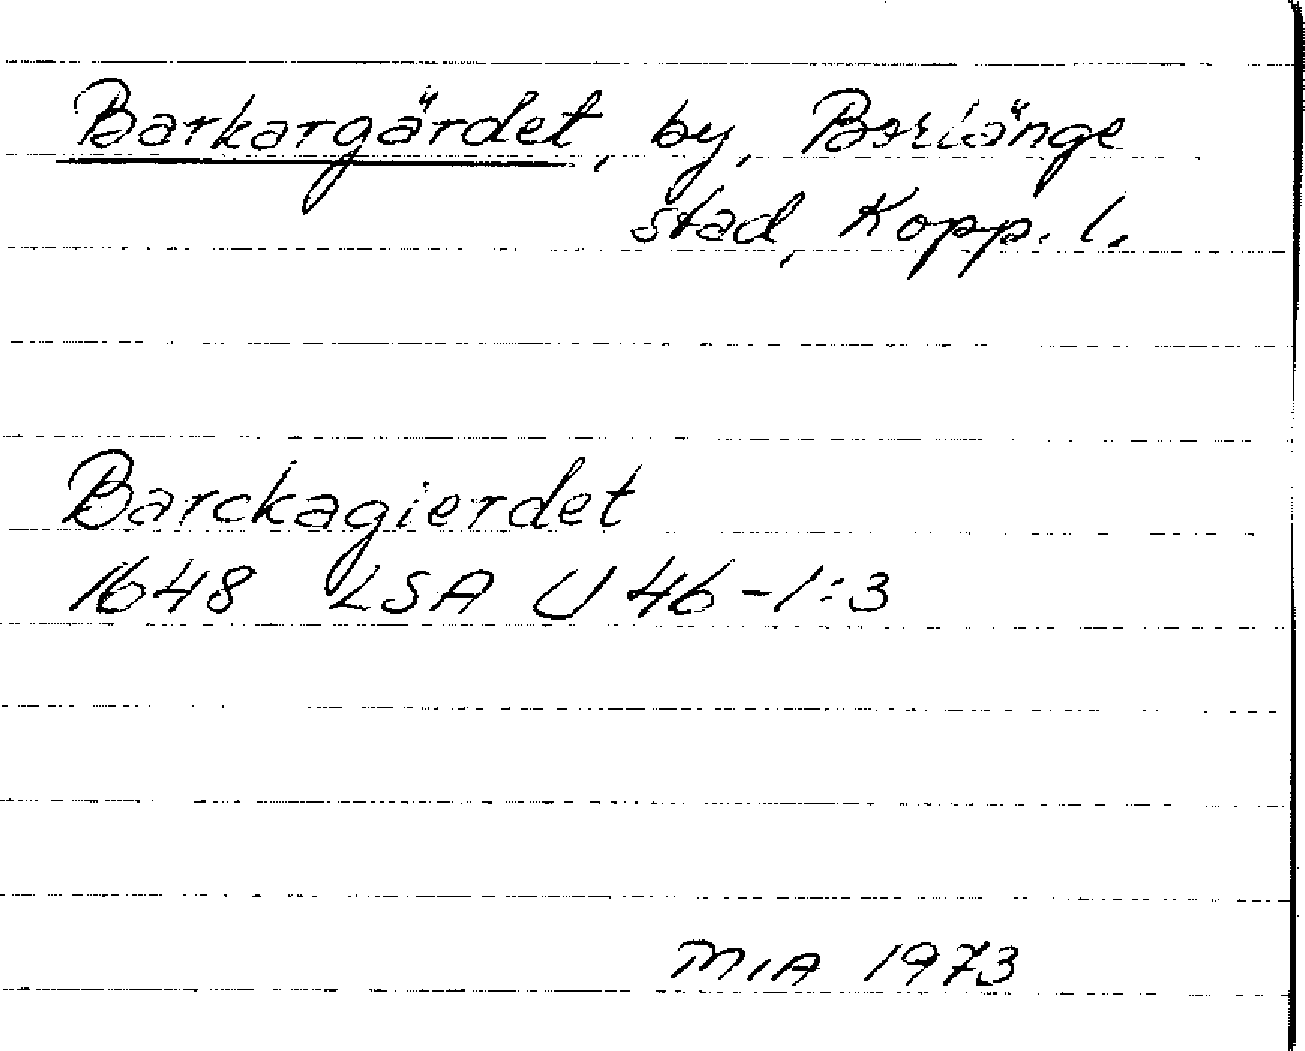 Barkargärdet, by, Borlänge
stad, Kopp. l.
Barckagierdet
1648 LSA U 46-1:3
MIA 1973